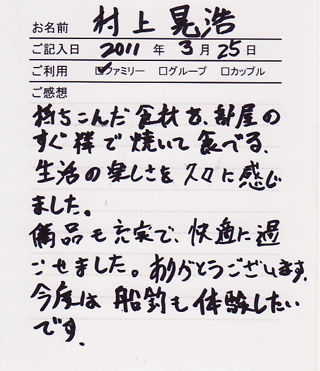 お名前 村上晃浩
ご記入日 2011 年 3 月 25 日
ご利用 ☑ファミリー □グループ □カップル
ご感想
持ちこんだ食材を、部屋の
すぐ横で焼いて食べる、
生活の楽しさを久々に感じ
ました。
備品も充実で、快適に過
ごせました。ありがとうございます。
今度は船釣も体験したい
です。